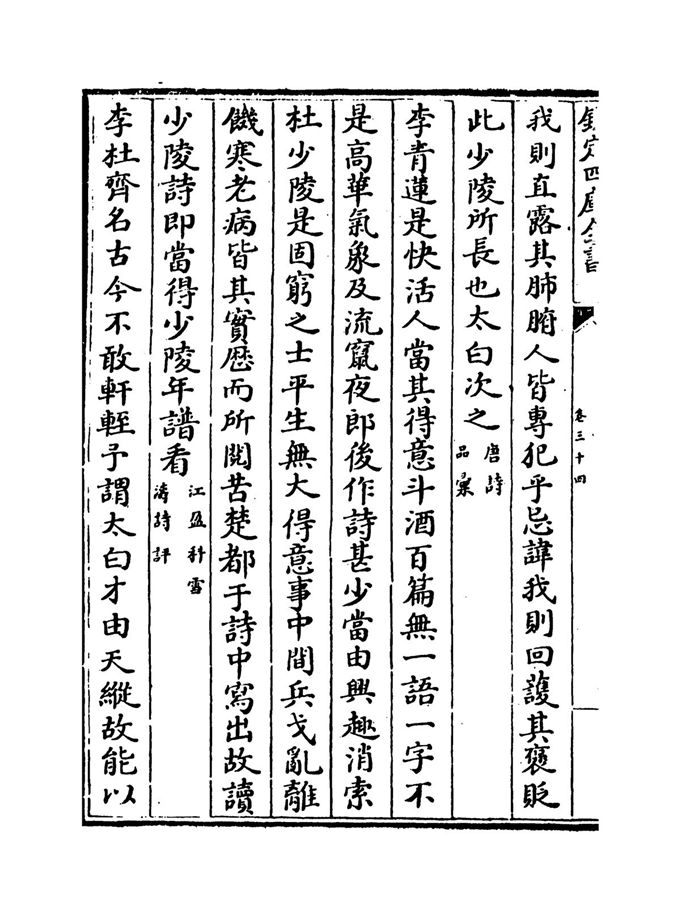 欽定四庫全書
卷三十四
我則直露其肺腑人皆專犯乎忌諱我則回護其褒貶
此少陵所長也太白次之唐詩
品彙
李青蓮是快活人當其得意斗酒百篇無一語一字不
是高華氣象及流竄夜郎後作詩甚少當由興趣消索
杜少陵是固窮之士平生無大得意事中間兵戈亂離
饑寒老病皆其實歴而所閱苦楚都于詩中寫出故讀
少陵詩即當得少陵年譜看江盈科雪
濤詩評
李杜齊名古今不敢軒輊予謂太白才由天縱故能以